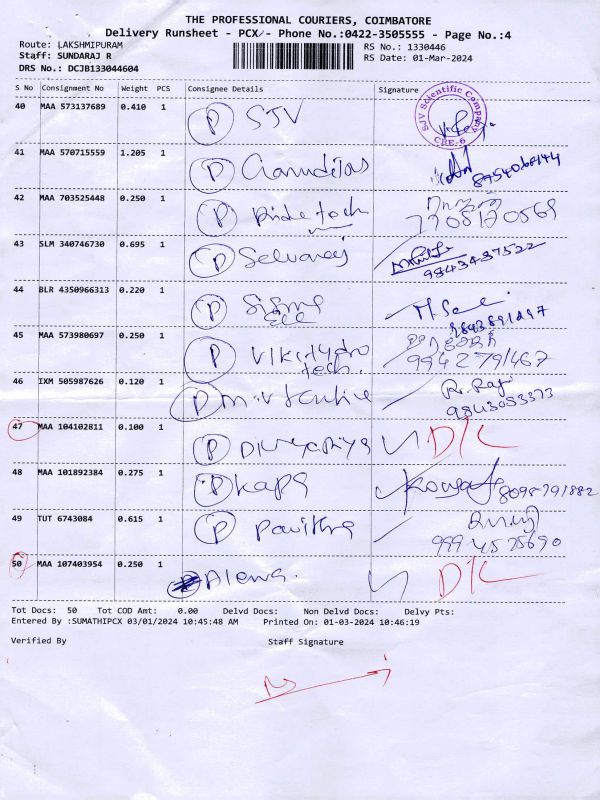 THE PROFESSIONAL COURIERS, COIMBATORE
Delivery Runsheet - PCX - Phone No.:0422-3505555 - Page No.:4
Route: LAKSHMIPURAM
RS No.: 1330446
Staff: SUNDARAJ R
RS Date: 01-Mar-2024
DRS No.: DCJB133044604
S No Consignment No Weight PCS Consignee Details Signature
40 MAA 573137689 0.410 1 P SJV
SJV Scientific Company
CBE-6
41 MAA 570715559 1.205 1 P
42 MAA 703525448 0.250 1 P Pride tech
7708170569
43 SLM 340746730 0.695 1 P Selvaraj
9843437522
44 BLR 4350966313 0.220 1 P Sigma
45 MAA 573980697 0.250 1 P Viki Hydro
tech
9942791467
46 IXM 505987626 0.120 1 P m.v textile R. Raji
9843053373
47 MAA 104102811 0.100 1 P Divyapriya D/C
48 MAA 101892384 0.275 1 P Kaps 8098791882
49 TUT 6743084 0.615 1 P Pavithra
50 MAA 107403954 0.250 1 P Alena D/C
Tot Docs: 50 Tot COD Amt: 0.00 Delvd Docs: Non Delvd Docs: Delvy Pts:
Entered By :SUMATHIPCX 03/01/2024 10:45:48 AM Printed On: 01-03-2024 10:46:19
Verified By Staff Signature